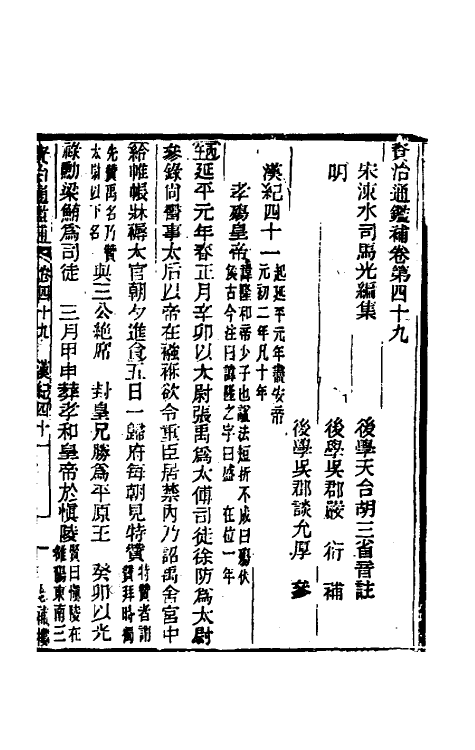 資治通鑑補卷第四十九
宋涑水司馬光編集
後學天台胡三省音註
明
後學吳郡嚴衍補
後學吳郡談允厚參
漢紀四十一
起延平元年盡安帝
元初二年凡十年
孝殤皇帝
諱隆和帝少子也諡法短折不成曰殤伏
侯古今注曰諱隆之字曰盛 在位一年
延平元年春正月辛卯以太尉張禹為太傅司徒徐防為太尉
參錄尚書事太后以帝在襁褓欲令重臣居禁內乃詔禹舍宮中
給帷帳牀褥太官朝夕進食五日一歸府每朝見特贊
特贊者謂
贊拜時獨
先贊禹名乃贊
太尉以下名
與三公絕席 封皇兄勝為平原王 癸卯以光
祿勳梁鮪為司徒 三月甲申葬孝和皇帝於愼陵
賢曰愼陵在
雒陽東南三
資治通鑑補
卷四十九 漢紀四十一